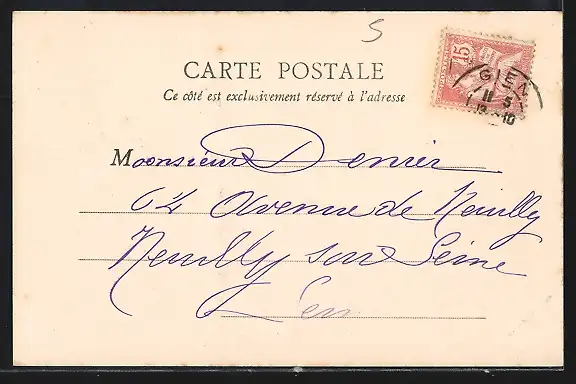 5
15
GIEN
11 5
CARTE POSTALE
Ce côté est exclusivement réservé à l'adresse
Monsieur Denier
64 Avenue de Neuilly
Neuilly sur Seine